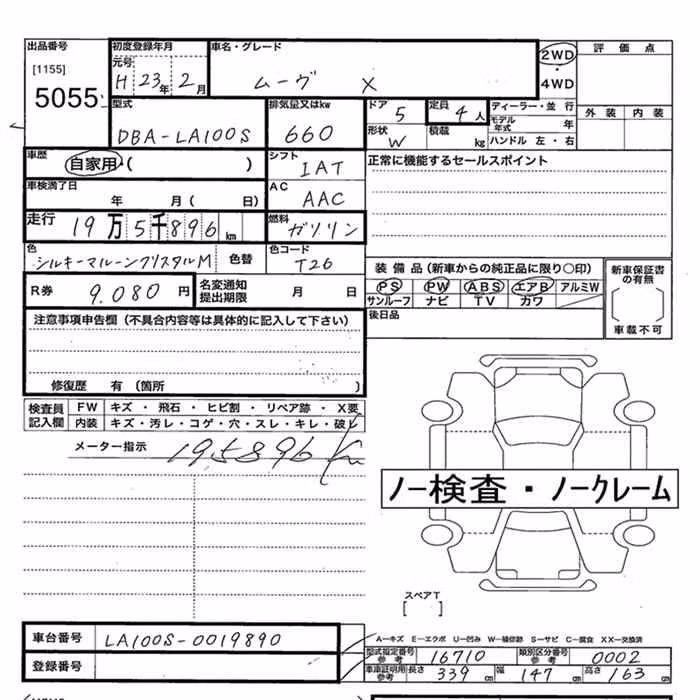 出品番号 初度登録年月 車名・グレード 2WD 評価点
[1155] 元号 ・
5055 H 23年 2月 ムーヴ X 4WD
型式 排気量又はkw ドア 5 定員 4人 ディーラー・並行 外装 内装
DBA-LA100S 660 形状 W 積載 kg モデル年式 年
ハンドル 左・右
車歴 自家用・( ) シフト IAT 正常に機能するセールスポイント
車検満了日 年 月( 日) AC AAC
走行 19万5千896km 燃料 ガソリン
色 シルキーマルーンクリスタルM 色替 色コード T26
装備品(新車からの純正品に限り○印) 新車保証書の有無
R券 9.080円 名変通知提出期限 月 日 PS PW ABS エアB アルミW
サンルーフ ナビ TV カワ
注意事項申告欄(不具合内容等は具体的に記入して下さい) 後日品 車載不可
修復歴 有(箇所 )
検査員記入欄 FW キズ・飛石・ヒビ割・リペア跡・X要
内装 キズ・汚レ・コゲ・穴・スレ・キレ・破レ
メーター指示 195896km
ノー検査・ノークレーム
スペアT
[ ]
車台番号 LA100S-0019890 A−キズ E−エクボ U−凹み W−補修跡 S−サビ C−腐食 XX−交換済
型式指定番号参考 16710 類別区分番号参考 0002
登録番号 車車証明用参考 長さ 339cm 幅 147cm 高さ 163cm